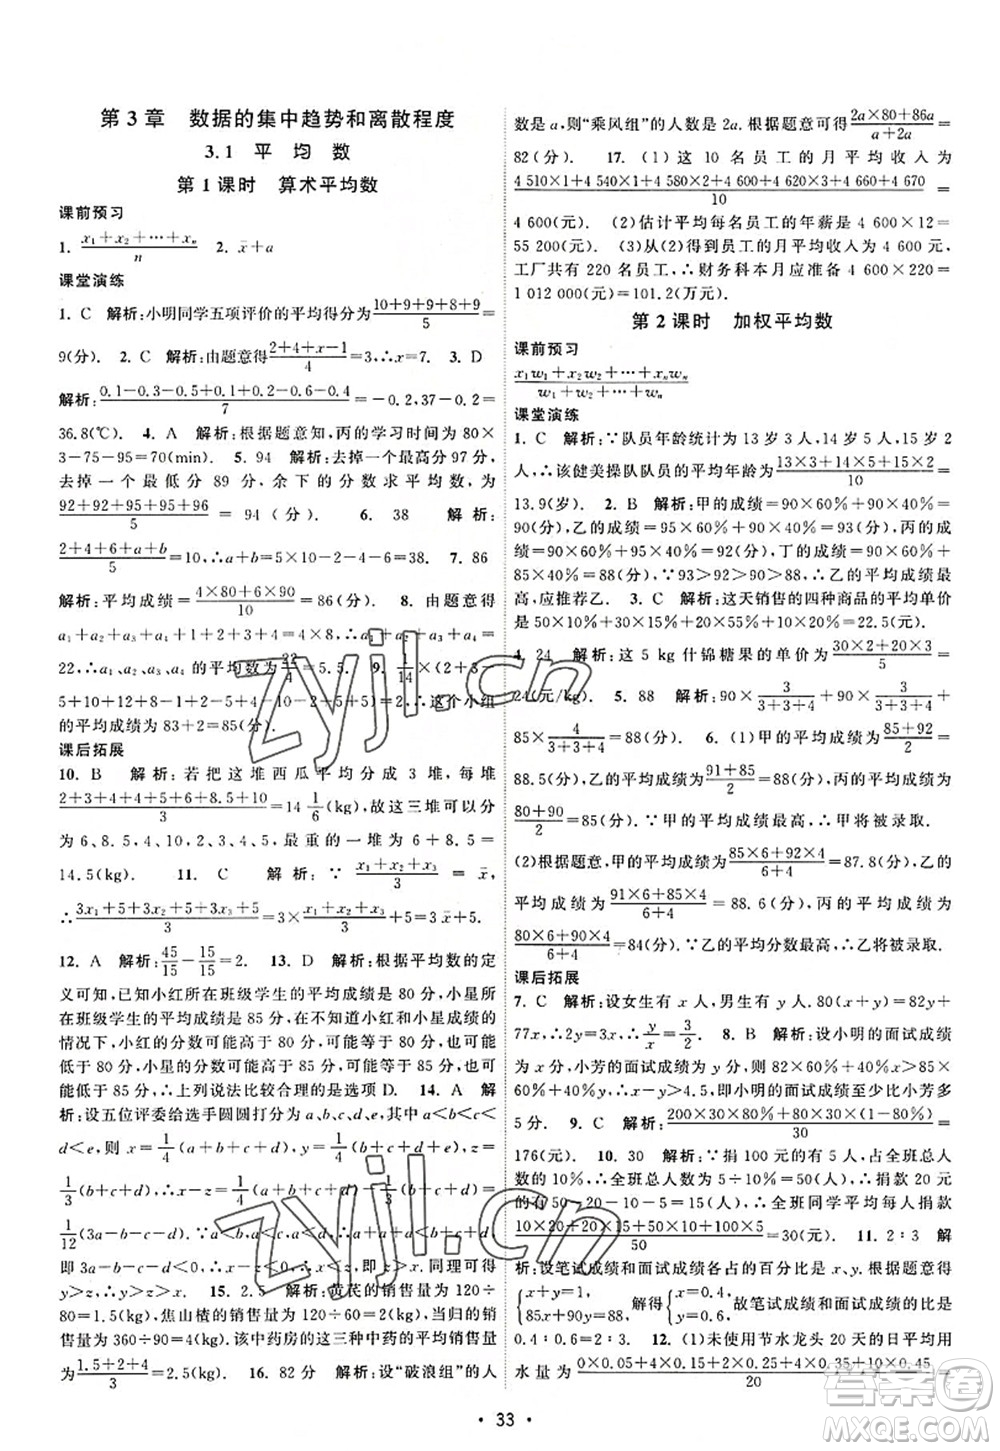 第 3 章　数据的集中趋势和离散程度
3.1　平　均　数
第 1 课时　算术平均数
课前预习
1. (x₁+x₂+…+xₙ)/n　2. x̄+a
课堂演练
1. C　解析:小明同学五项评价的平均得分 (10+9+9+8+9)/5 =
9(分).　2. C　解析:由题意得 (2+4+x-1)/4 =3,∴x=7.　3. D
解析: (0.1-0.3-0.5+0.1+0.1-0.5-0.4)/7 =-0.2,37-0.2=
36.8(℃)　4. A　解析:根据题意知,丙的学习时间为 80×
3-75-95=70(min).　5. 94　解析:去掉一个最高分 98 分,
去掉一个最低分 89 分,余下的平均数是,
(92+92+95+95+96)/5 = 94(分).　6. 38　解析:
(2+4+6+a+b)/5 =10,∴a+b=5×10-2-4-6=38.　7. 86
解析:平均成绩= (4×80+6×90)/10 =86(分)　8. 由题意得
a₁+a₁+a₂+a₂+a₃+a₃+a₄+a₄=4+4×8,∴a₁+a₂+a₃+a₄=
22,∴a₁,a₂,a₃,a₄ 的平均数为 22/4 =5.5.　9. 1/14 ×(
的平均成绩为 83+2=85(分).
课后拓展
10. B　解析:若把这堆西瓜平均分成 3 堆,每堆
(2+2+3+4+5+6+6.5+8+8.5)/3 =14 1/6 (kg),故这三堆可以分
为 6、8.5,8、6.5,2、3、4、5,∴最重的一堆为 6+8.5=
14.5(kg).　11. C　解析:∵ (x₁+x₂+x₃)/3 = x̄,
∴ (3x₁+5+3x₂+5+3x₃+5)/3 =3× (x₁+x₂+x₃)/3 +5=3x̄+5.
12. A　解析: 45/15 - 15/15 =2.　13. D　解析:根据平均数的定
义可知,已知小红所在班级学生的平均成绩是 80 分,小星所
在班级学生的平均成绩是 85 分,在不知道小红和小星成绩的
情况下,小红的分数可能高于 80 分,可能等于 80 分,也可能
低于 80 分,小星的分数可能高于 85 分,可能等于 85 分,可能低
于 85 分,∴上列说法比合理的是选项 D.　14. A　解
析:设五位评委给选手圆圆打分为 a,b,c,d,e.其中 a<b<c<
d<e,则 x= 1/4 (a+b+c+d),y= 1/3 (b+c+d),z=
1/4 (b+c+d+e),∴x-z=
1/12 (3a-b-c-d).∵a<b,a<c,a<d,∴a+a+a<b+c+d,
即 3a<b+c+d,∴3a-b-c-d<0,∴x<y.同理可得
y>z,∴　15. 2.5　解析:黄芪的销售量为 120÷
80=1.5(kg),焦山楂的销售量为 120÷60=2(kg),当归的销
售量为 360÷90=4(kg),该中药房的这三种中药的平均销售量
为 (1.5+2+4)/3 =2.5(kg).　16. 82 分　解析:设“破浪组”的人
数是 a,则“乘风组”的人数是 2a.根据题意可得 (2a×80+86a)/(a+2a) =
82(分)　17. (1)这 10 名员工的月平均收入为
(4 510×1+4 520×2+4 570×3+4 640×3+4 670)/10 =
4 600(元).　(2)估计平均每名员工的年薪是 4 600×12=
55 200(元).　(3)从(2)得到员工的月平均收入为 4 600 元,
工厂共有 220 名员工,∴财务科本月应准备 4 600×220=
1 012 000(元)=101.2(万元).
第 2 课时　加权平均数
课前预习
(x₁w₁+x₂w₂+…+xₙwₙ)/(w₁+w₂+…+wₙ)
课堂演练
1. C　解析:∵队员年龄统计为 13 岁 3 人,14 岁 5 人,15 岁
2 人,∴该健美操队队员的平均年龄为 (13×3+14×5+15×2)/10 =
13.9(岁).　2. B　解析:甲的成绩=90×60%+90×40%=
90(分),乙的成绩=95×60%+90×40%=93(分),丙的成
绩=90×60%+95×40%=92(分),丁的成绩=85×60%+
85×40%=85(分).∵93>92>90>85,∴乙的综合成绩最好,
应推荐乙.　3. C　解析:这天销售的四种商品的平均单价
是 50×10%+30×15%+20×55%+10×20%=22.5(元).
4. 24　解析:这 5 kg 什锦糖果的单价为 (30×2+20×3)/5 =
24(元/kg).　5. 88　解析:90× 3/(3+3+4) +90× 3/(3+3+4) +
85× 4/(3+3+4) =88(分)　6. (1)甲的平均成绩为 (85+92)/2 =
88.5(分),乙的平均成绩为 (91+85)/2 =88(分),丙的平均成绩为
(80+90)/2 =85(分).∵甲的平均成绩最高,∴甲将被录取.
(2)根据题意,甲的平均成绩为 (85×6+92×4)/(6+4) =87.8(分),乙的
平均成绩为 (91×6+85×4)/(6+4) =88.6(分),丙的平均成绩为
(80×6+90×4)/(6+4) =84(分).∵乙的平均分数最高,∴乙将被录取.
课后拓展
7. C　解析:设女生有 x 人,男生有 y 人,∴80(x+y)=82y+
77x,∴2y=3x,∴ y/x = 3/2 .　8. B　解析:设小明的面试成绩
为 x 分,小芳的面试成绩为 y 分,根据题意得 82×60%+
40%x>87×60%+40%y,∴x-y>7.5,即小明的面试成绩至少比小芳多
分.　9. C　解析: (200×30×80%+200×30×(1-80%))/30 =
176(元)　10. 30　解析:∵捐 100 元的 5 人,占全班总人
数的 10%,∴全班总人数为 5÷10%=50(人),∴捐款 20 元的
有 50-20-10-5=15(人),∴全班同学平均每人捐款
(10×20+20×15+50×10+100×5)/50 =30(元)　11. 2∶3　解析:
设笔试成绩和面试成绩各占的百分比是 x,y,可得
{x+y=1, 85x+90y=88,　解得 {x=0.4, y=0.6.　故笔试成绩和面试成绩的比是
0.4∶0.6=2∶3　12. (1)未使用节水龙头 20 天的日平均用
水量为 (0×0.05+4×0.15+2×0.25+4×0.35+
· 33 ·
zyjl.cn
zyjl.cn
答案圈
MXQE.COM